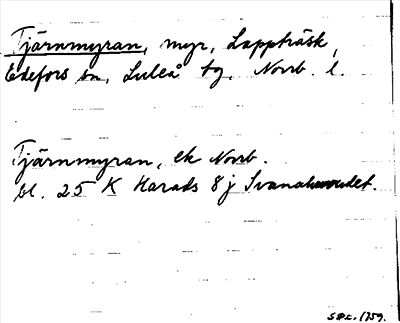 Tjärnmyran, myr, Lappträsk,
Edefors sn, Luleå tg, Norrb. l.
Tjärnmyran, ek Norrb.
bl. 25 K Harads 8 j Svanahuvudet.